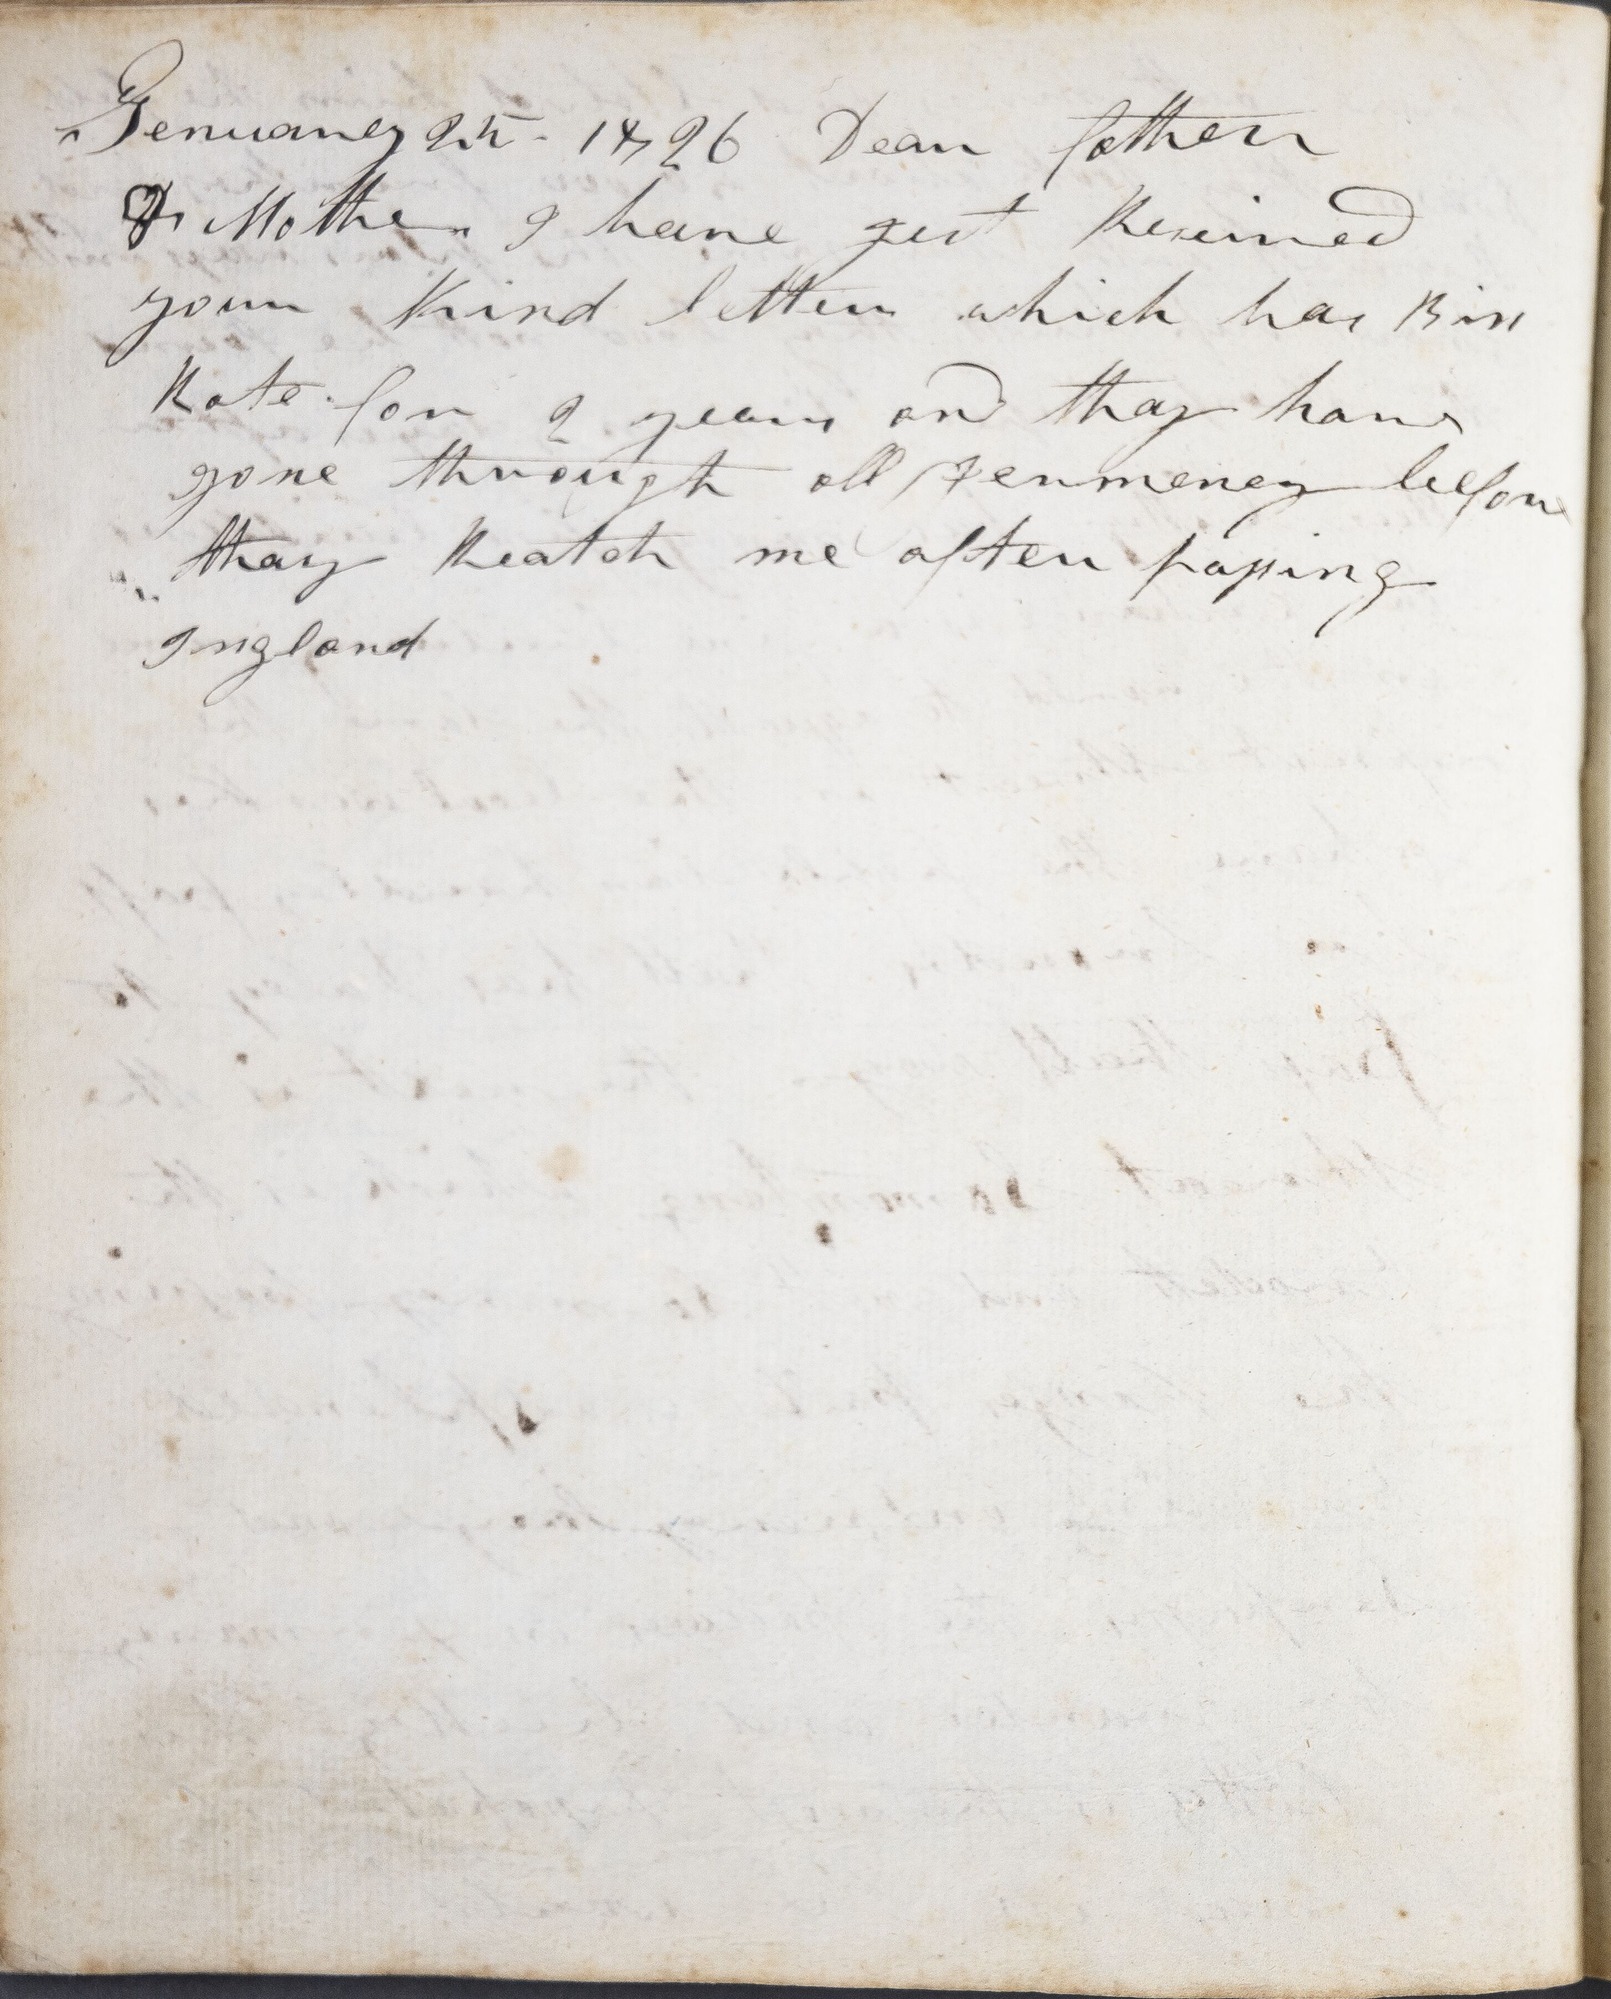 Jenuarey 25 - 1826 Dear father
& Mother I have jest Received
your Kind letter which has Bin
Rote for 2 years and thay have
gone through all Jermeney before
thay Reatch me after passing
Ingland